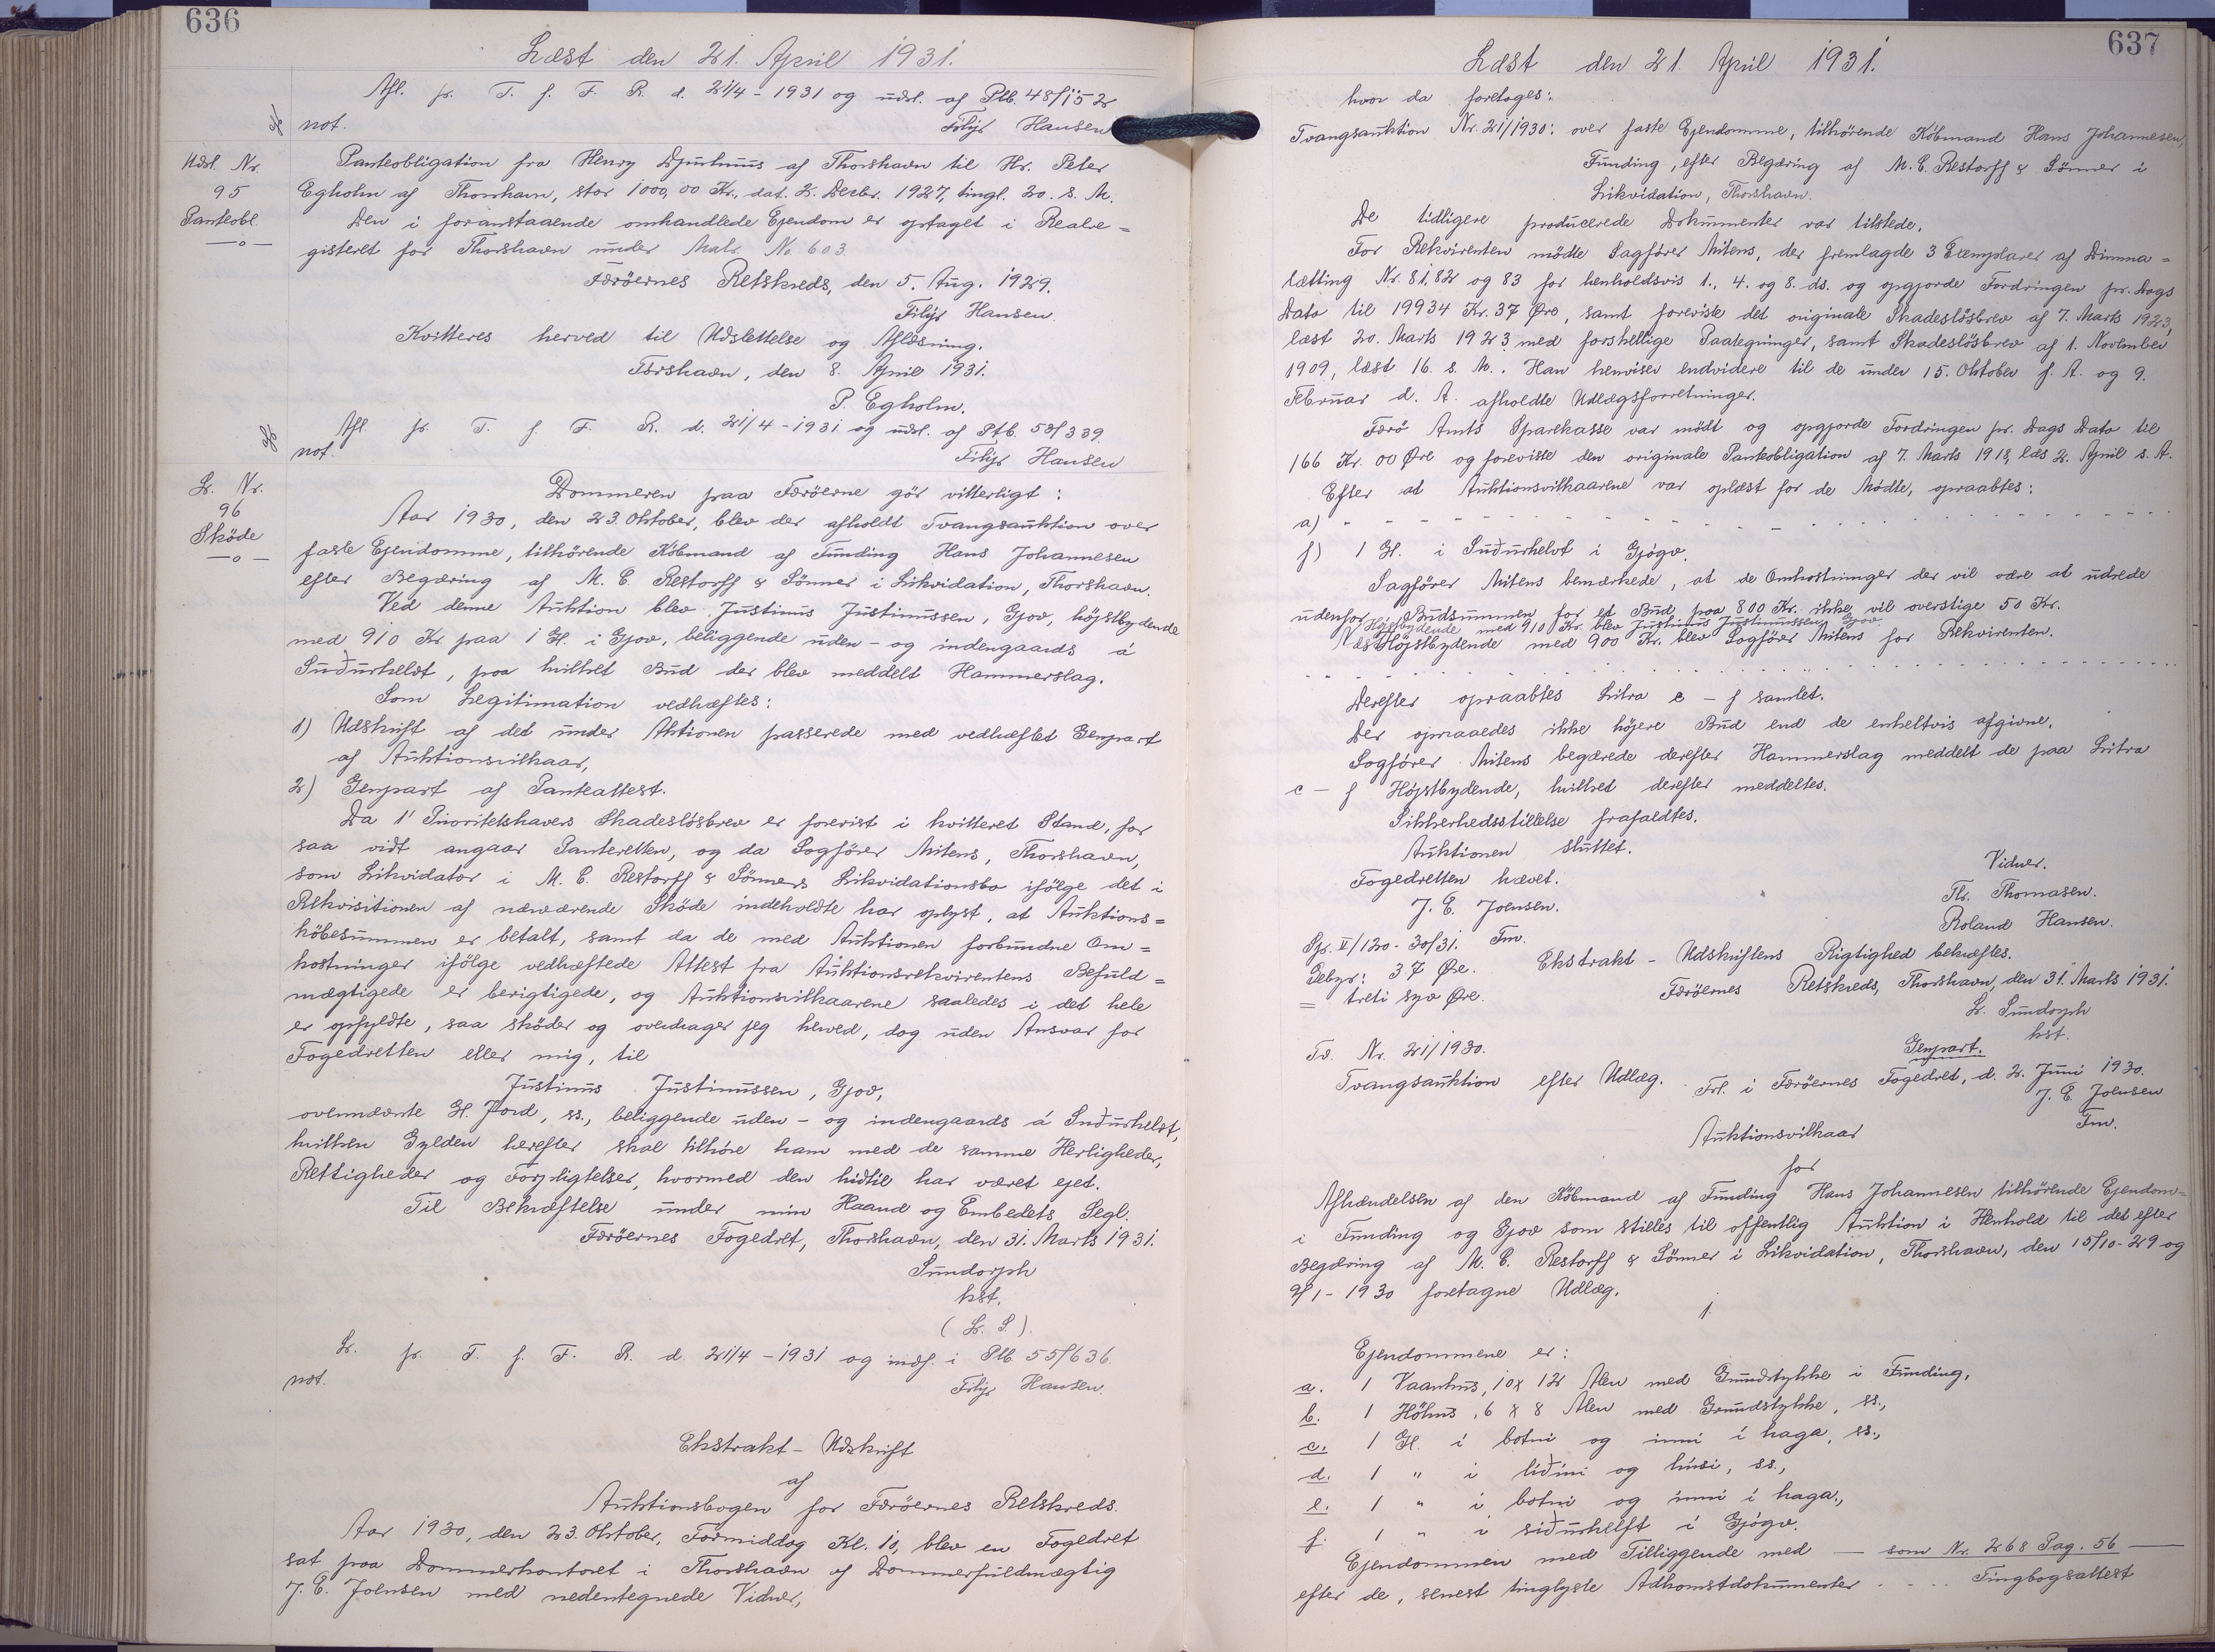 636
Læst den 21. April 1931.
Afl. pr. T. f. F. R. d. 21/4-1931 og udsl. af Ptb. 48/152
not. Filip Hansen
Udsl. Nr.
95
Panteobl.
Panteobligation fra Henry Djurhuus af Thorshavn til Hr. Peter
Egholm af Thorshavn, stor 1000,00 Kr., dat. 2. Decbr. 1927, tingl. 20. s. M.
Den i foranstaaende omhandlede Ejendom er optaget i Realre=
gisteret for Thorshavn under Matr. No. 603.
Færöernes Retskreds, den 5. Aug. 1929.
Filip Hansen.
Kvitteres herved til Udslettelse og Aflæsning.
Torshavn, den 8. April 1931.
P. Egholm.
Afl. pr. T. f. F. R. d. 21/4-1931 og udsl. af Ptb. 53/339
not. Filip Hansen
L. Nr.
96
Sköde
Dommeren paa Færöerne gör vitterligt:
Aar 1930, den 23. Oktober, blev der afholdt Tvangsauktion over
faste Ejendomme, tilhörende Köbmand af Funding Hans Johannesen
efter Begæring af M. C. Restorff & Sönner i Likvidation, Thorshavn.
Ved denne Auktion blev Justinus Justinussen, Gjov, höjstbydende
med 910 Kr paa 1 Gl. i Gjov, beliggende uden- og indengaards á
Suðurhelvt, paa hvilket Bud der blev meddelt Hammerslag.
Som Legitimation vedhæftes:
1) Udskrift af det under Aktionen passerede med vedhæftet Genpart
af Auktionsvilkaar,
2) Genpart af Panteattest.
Da 1' Prioritetshavers Skadeslösbrev er forevist i kvitteret Stand, for
saa vidt angaar Panteretten, og da Sagförer Mitens, Thorshavn,
som Likvidator i M. C. Restorff & Sönners Likvidationsbo ifölge det i
Rekvisitionen af nærværende Sköde indeholdte har oplyst, at Auktions=
köbesummen er betalt, samt da de med Auktionen forbundne Om=
kostninger ifölge vedhæftede Attest fra Auktionsrekvirentens Befuld=
mægtigede er berigtigede, og Auktionsvilkaarene saaledes i det hele
er opfyldte, saa sköder og overdrager jeg herved, dog uden Ansvar for
Fogedretten eller mig, til
Justinus Justinussen, Gjov,
ovennævnte Gl. Jord, ss., beliggende uden- og indengaards á Suðurhelvt,
hvilken Gylden herefter skal tilhöre ham med de samme Herligheder,
Rettigheder og Forpligtelser, hvormed den hidtil har været ejet.
Til Bekræftelse under min Haand og Embedets Segl.
Færöernes Fogedret, Thorshavn, den 31. Marts 1931.
Sundorph
kst.
(L. S.)
L. pr. T. f. F. R. d. 21/4-1931 og indf. i Ptb. 55/636.
not. Filip Hansen.
Ekstrakt-Udskrift
af
Auktionsbogen for Færöernes Retskreds.
Aar 1930, den 23. Oktober, Formiddag Kl. 10, blev en Fogedret
sat paa Dommerkontoret i Thorshavn af Dommerfuldmægtig
J. E. Joensen med nedentegnede Vidner,
637
Læst den 21. April 1931.
hvor da foretoges:
Tvangsauktion Nr. 21/1930: over faste Ejendomme, tilhörende Köbmand Hans Johannesen,
Funding, efter Begæring af M. C. Restorff & Sönner i
Likvidation, Thorshavn.
De tidligere producerede Dokumenter var tilstede.
For Rekvirenten mödte Sagförer Mitens, der fremlagde 3 Exemplarer af Dimma=
lætting Nr. 81. 82 og 83 for henholdsvis 1., 4. og 8. ds. og opgjorde Fordringen pr. Dags
Dato til 19934 Kr. 37 Øre, samt foreviste det originale Skadeslösbrev af 7. Marts 1923,
læst 20. Marts 1923 med forskellige Paategninger, samt Skadeslösbrev af 1. November
1909, læst 16. s. M.. Han henviser endvidere til de under 15. Oktober f. A. og 9.
Februar d. A. afholdte Udlægsforretninger.
Færö Amts Sparekasse var mödt og opgjorde Fordringen pr. Dags Dato til
166 Kr. 00 Øre og foreviste den originale Panteobligation af 7. Marts 1918, læs 2. April s. A.
Efter at Auktionsvilkaarene var oplæst for de Mödte, opraabtes:
a) - - - - - - - - - -
f) 1 Gl. i Suðurhelvt i Gjógv.
Sagförer Mitens bemærkede, at de Omkostninger der vil være at udrede
udenfor Budsummen for et Bud paa 800 Kr. ikke vil overstige 50 Kr.
Höjstbydende med 910 Kr. blev Justinus Justinussen, Gjov.
Næsthöjstbydende med 900 Kr. blev Sagförer Mitens for Rekvirenten.
- - - - - - - - - -
Derefter opraabtes Litra c - f samlet.
Der opnaaedes ikke höjere Bud end de enkeltvis afgivne.
Sagförer Mitens begærede derefter Hammerslag meddelt de paa Litra
c - f Höjstbydende, hvilket derefter meddeltes.
Sikkerhedsstillelse frafaldtes.
Auktionen sluttet.
Fogedretten hævet.
J. E. Joensen.
Fm.
Vidner.
Th. Thomasen.
Roland Hansen.
Spr. II/120-30/31.
Gebyr: 37 Øre.
= treti syv Øre.
Ekstrakt-Udskriftens Rigtighed bekræftes.
Færöernes Retskreds, Thorshavn, den 31. Marts 1931.
L. Sundorph
kst.
Tv. Nr. 21/1930.
Genpart.
Tvangsauktion efter Udlæg. Frl. i Færöernes Fogedret, d. 2. Juni 1930.
J. E. Joensen
Fm.
Auktionsvilkaar
for
Afhændelsen af den Köbmand af Funding Hans Johannesen tilhörende Ejendom=
i Funding og Gjov som stilles til offentlig Auktion i Henhold til det efter
Begæring af M. C. Restorff & Sönner i Likvidation, Thorshavn, den 15/10-29 og
9/1-1930 foretagne Udlæg.
1.
Ejendommene er:
a. 1 Vaanhus, 10 x 12 Alen med Grundstykke i Funding,
b. 1 Höhus, 6 x 8 Alen med Grundstykke, ss.,
c. 1 Gl. i botni og inni i haga, ss.,
d. 1 " i liðini og húsi, ss.,
e. 1 " i botni og inni i haga.,
f. 1 " i siðurhelft i Gjógv.
Ejendommen med Tilliggende med — som Nr. 268 Pag. 56 —
efter de, senest tinglyste Adkomstdokumenter . . . . Tingbogsattest